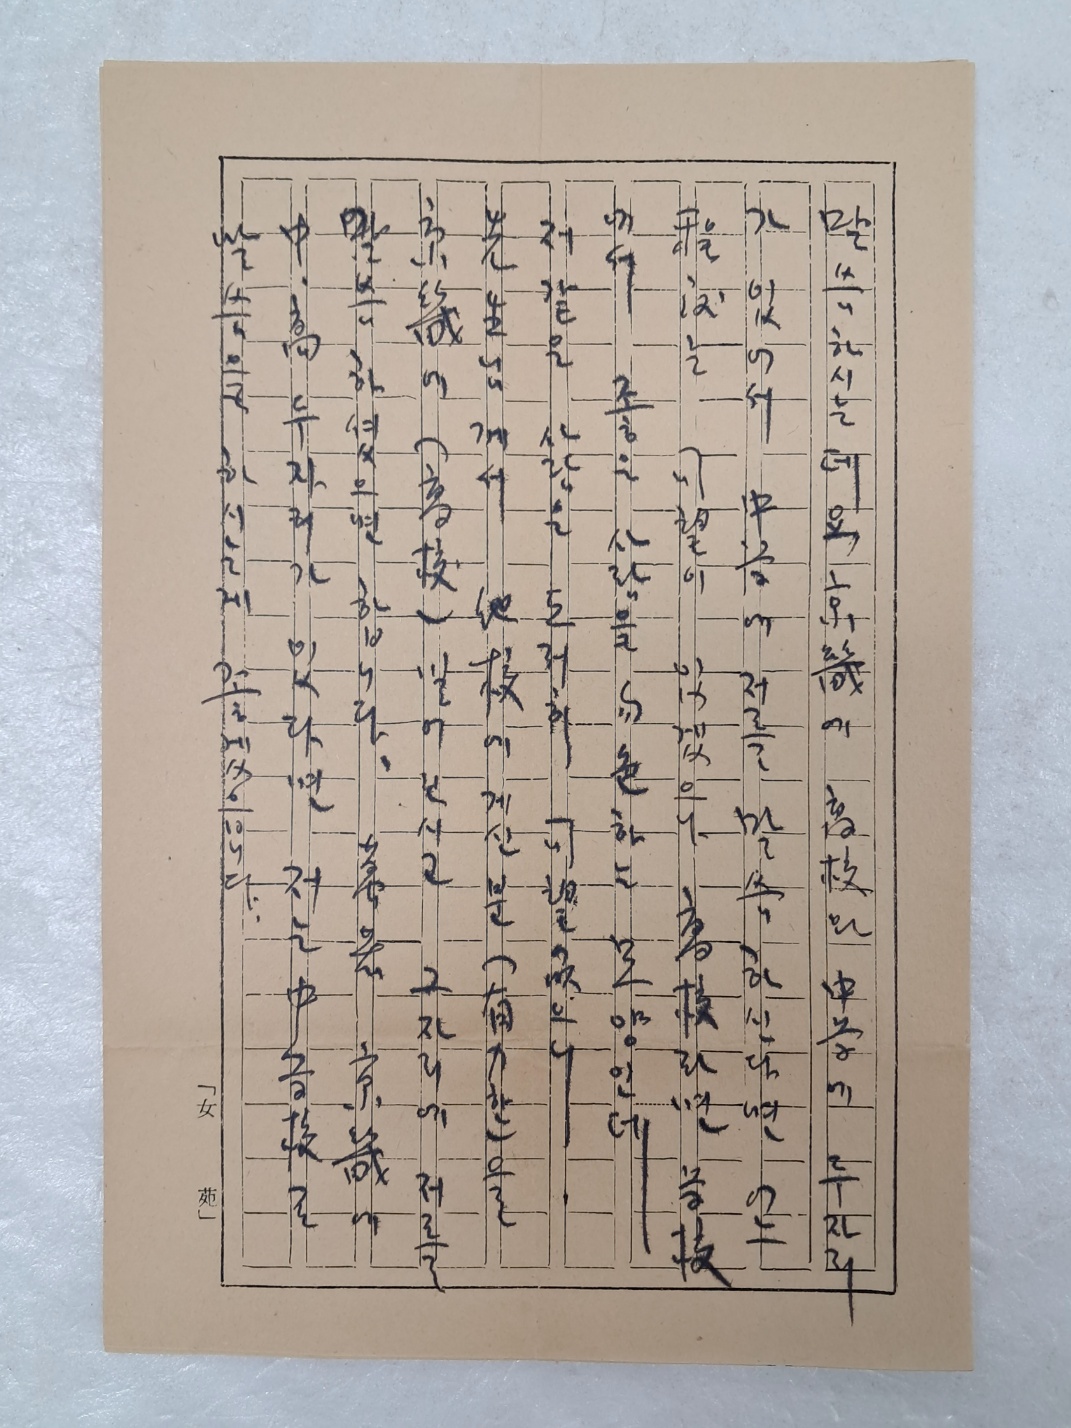 말씀하시는데 혹 京畿에 高校만 中学에 두자리
가 있어서 中学에 저를 말씀하신다면 어느
程度는 可望이 있겠으나 高校라면 学校
에서 좋은 사람을 物色하는 모양인데
저 같은 사람은 도저히 可望없으니
先生님께서 他校에 계신 분 을
京畿에 (高校) 밀어 보시고 그 자리에 저를
말씀 하셨으면 합니다. 萬若 京畿에
中·高 두자리가 있다면 저는 中学校를
말씀이죠
「女苑」